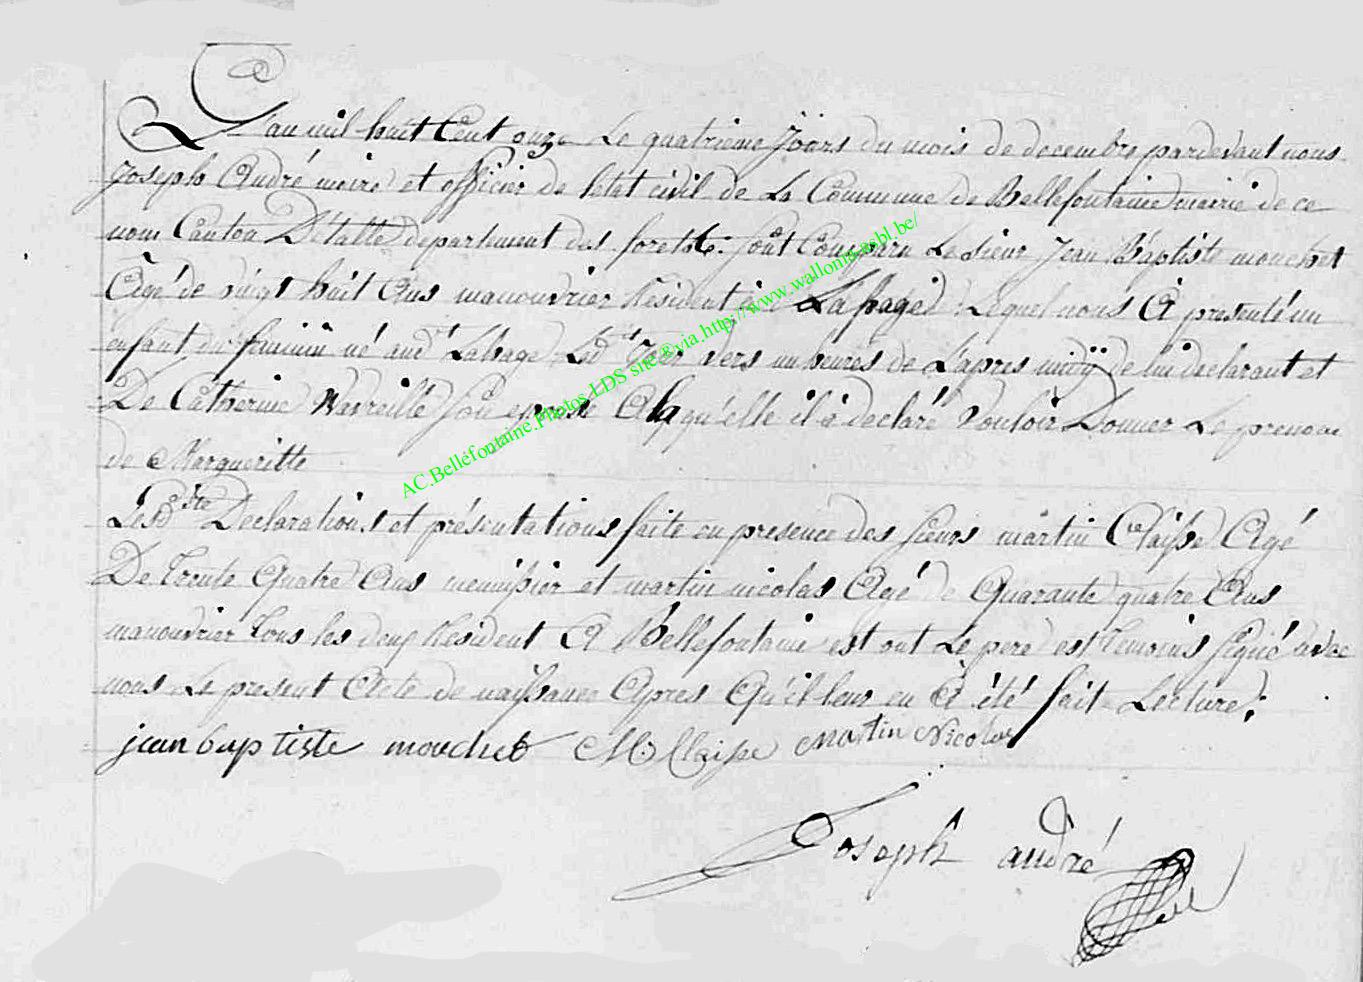 L'an mil huit Cent onze Le quatrieme Jours du mois de decembre pardevant nous
Joseph André maire et officier de letat civil de La Commune de Bellefontaine mairie de ce
nom Canton Détalle departement des forets Sont Comparu Le sieur Jean Baptiste mouchet
Agé de vingt huit Ans manouvrier Résident Lahage Lequel nous A presenté un
enfant du feminin né aud.t Lahage Led.t Jour vers un heures de L'apres midÿ de lui declarant et
De Catherine Wavreille son epouse A laqu'elle il a declaré Vouloir Donner Le prenom
de Margueritte
Lesd.ite Declarations et présentations faite en presence des sieurs martin Claisse Agé
De Trente Quatre Ans menuisier et martin nicolas Agé de Quarante quatre Ans
manouvrier Tous les deux Résident A Bellefontaine est ont Le pere est Temoins signé avec
nous Le present Acte de naissance Apres Qu'il leur en A été fait Lecture;
jean baptiste mouchet M. Claisse Martin Nicolas
Joseph andré
AC.Bellefontaine.Photos LDS site ©via.http://www.wallonia.asbl.be/